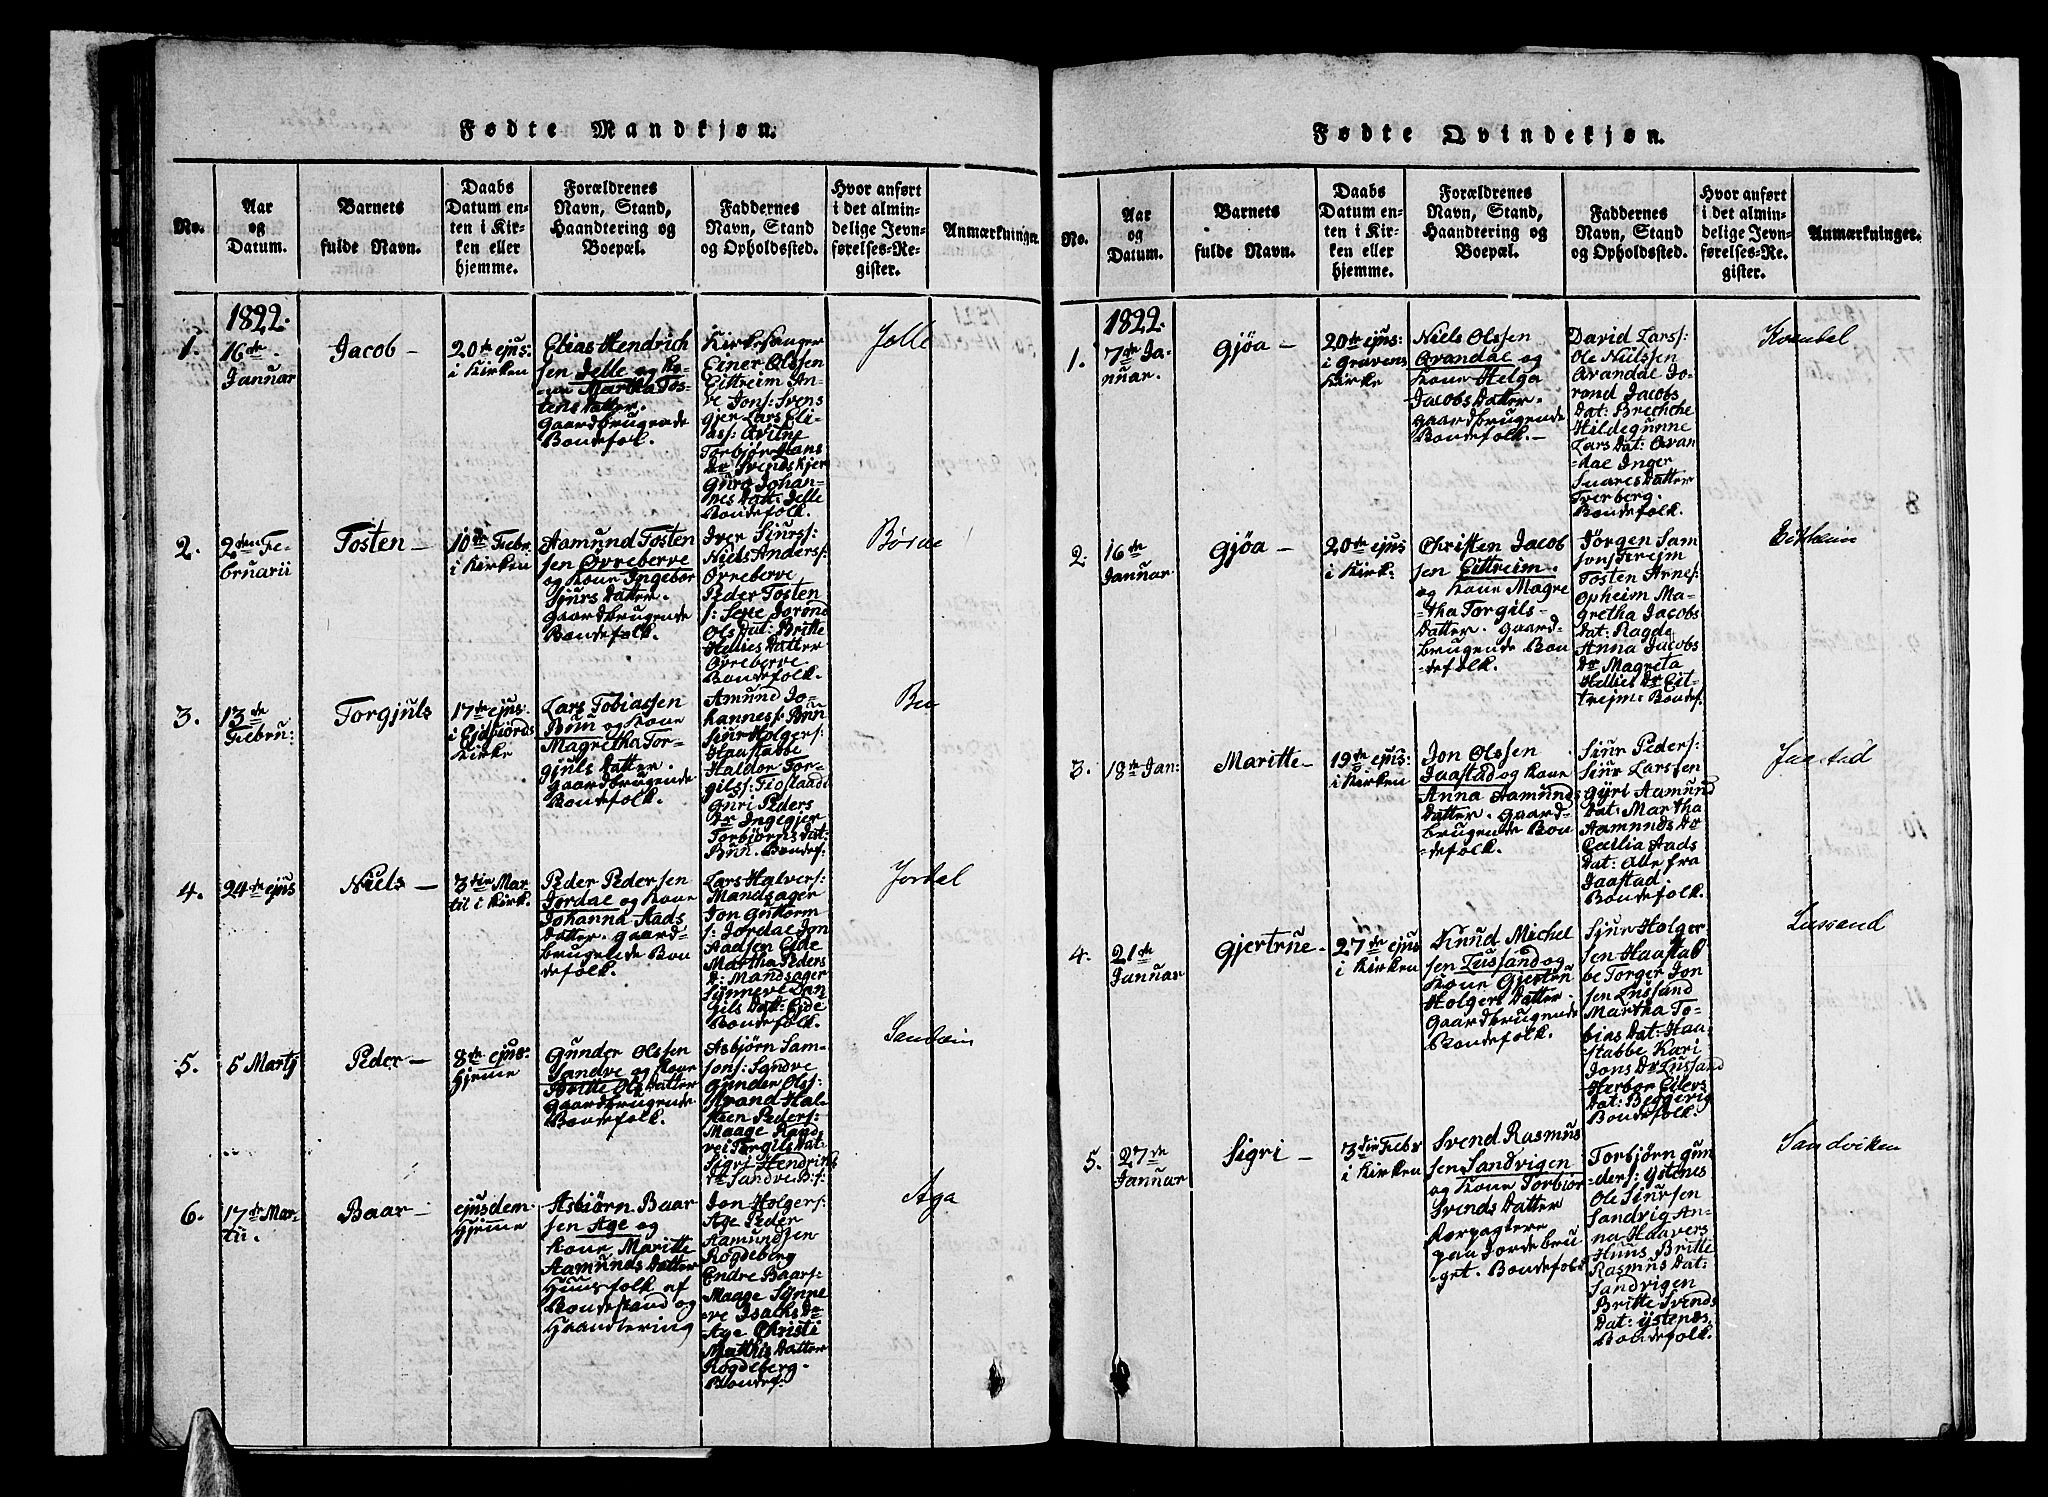 Fødte Mandkjøn.
No.
Aar
og
Datum.
Barnets
fulde Navn.
Daabs
Datum en-
ten i Kir-
ken eller
hjemme.
Forældrenes
Navn, Stand,
Haandtering og
Boepæl.
Faddernes
Navn, Stand
og Opholdssted.
Hvor anført
i det almin-
delige Jevn-
førelses-Re-
gister.
Anmærkninger.
1822.
1.
16de
Januar
Jacob -
20de ejus:
i Kirken
Elias Hendrich
sen Jelle og Ko-
ne Martha Tos-
tens Datter.
Gaardbrugende
Bondefolk.
Kirkesanger
Einer Olssen
Eittreim An-
ve Jons: Svens
gjer Lars Eli-
as:
Torbjør Hans
Dr Svendskjer
Guro Johan-
nes Datt: Jelle
Bondefolk.
Jolle
2.
2den Fe-
bruarii
Tosten -
10de Febr:
i Kirken
Aamund Tosten
sen Øvreberve
og Kone Ingebor
Sjurs Datter.
Gaardbrugende
Bondefolk.
Iver Siurs:
Niels Anders:
Øvreberve
Peder Tosten
s: Sexe Jorond
Ols dat: Britte
Hellies Datter
Øvreberve
Bondefolk.
Børve
3.
13de
Febru:
Torgjuls
17de ejus:
i Eidfiords
Kirke
Lars Tobiassen
Buu og Kone
Magretha Tor-
gjuls Datter.
Gaardbrugende
Bondefolk.
Amund Jo-
hanness: Buu
Siur Holgers:
Haastabbe
Haldor Tor-
gils:
Guri Peders
Dr Ingegjer
Torbjørns Dat:
Buu. Bondef:
Bu
4.
24de ejus
Niels -
3die Mar-
til i Kirk.
Peder Pedersen
Jordal og Kone
Johanna Aads
Datter. Gaard-
brugende Bon
defolk.
Lars Halvers:
Mandsager
Jon Guttorm
s: Jordal Jon
Aadsen Eide
Martha Peders
D: Mandsager
Synneve Dan
gils Dat: Eide
Bondefolk.
Jordal
5.
5 Martii
Peder -
8de ejus:
Hjeme
Gunder Olssen
Sandve og Kone
Britte Ols Datter
Gaardbrugende
Bondefolk.
Asbjørn Sam-
sons: Sandve
Gunder Olss:
Strand Hal-
sten Peders:
Maage Rand
vei Torgils Dat:
Sigri Hendriks
Dr Sandve B: f:
Sandvin
6.
17de Mar-
tii.
Baar -
ejusdem
Hjeme
Asbiørn Baar
sen Age og
Kone Maritte
Aamunds Datter
Huusfolk af
Bondestand og
Haandtering
Jon Holgers:
Age Peder
Aamundsen
Rogdeberg
Endre Baars:
Maage Synne
ve Isachs Dr
Age Christi
Mathis Datter
Rogdeberg.
Bondef:
Aga
Fødte Qvindekjøn.
No.
Aar
og
Datum.
Barnets
fulde Navn.
Daabs
Datum en-
ten i Kir-
ken eller
hjemme.
Forældrenes
Navn, Stand,
Haandtering og
Boepæl.
Faddernes
Navn, Stand
og Opholdssted.
Hvor anført
i det almin-
delige Jevn-
førelses-Re-
gister.
Anmærkninger.
1822.
1.
7de Ja-
nuar.
Gjøa -
20de ejus:
i Gravens
Kirke
Niels Olssen
Qvandal og
Kone Helga
Jacobs Datter.
Gaardbrugende
Bondefolk. -
David Lars:
Ole Nielssen
Qvandal Jo-
rond Jacobs
Dat: Brechche
Hildegunne
Lars Dat: Qvan
-dal Inger
Snares Datter
Tverberg.
Bondefolk.
2.
16de
Januar
Gjøa -
20de ejus
i Kirk:
Christen Jacob
sen Eittreim.
og Kone Magre
-tha Torgils-
Datter. Gaard-
brugende Bon
-defolk.
Jørgen Sam
sons Treim
Tosten Arnes:
Opheim Ma-
gretha Jacobs
Dat: Ragde
Anna Jacobs
Dr Magreta
Hellies Dr Eit-
trejm: Bondef:
3.
18de Jan:
Maritte -
19de ejus:
i Kirken
Jon Olssen
Jaastad og Kone
Anna Aamunds
Datter. Gaard-
brugende Bon
-defolk.
Siur Peders:
Siur Larssen
Gyri Aamund
Dat: Martha
Aamunds Dr
Cecilia Aads
Dat: Alle fra
Jaastad.
Bondefolk.
Jaastad
4.
21de
Januar
Gjertrue -
27de ejus
i Kirken
Knud Michel
sen Lussand og
Kone Gjertru
Holgers Datter.
Gaardbrugende
Bondefolk.
Sjur Holger
sen Haastab
be Torger Jon
sen Lussand
Martha To-
bias Dat: Haa-
stabbe Kari
Jons Dr Lussand
Herbor Eilers
Dat: Beggevig
Bondefolk.
Lussand
5.
27de
Januar
Sigri -
3die Febr
i Kirken
Svend Rasmus
sen Sandvigen
og Kone Torbiør
Svends Datter
Forpagtere
paa Jordebru
-get. Bondefolk
Torbjørn Gun
-ders: Ystenes
Ole Siursen
Sandvig An-
na Haavers
Huus Britte
Rasmus Dat:
Sandvigen
Britte Svends
Dat: Ystenes
Bondefolk.
Sandviken